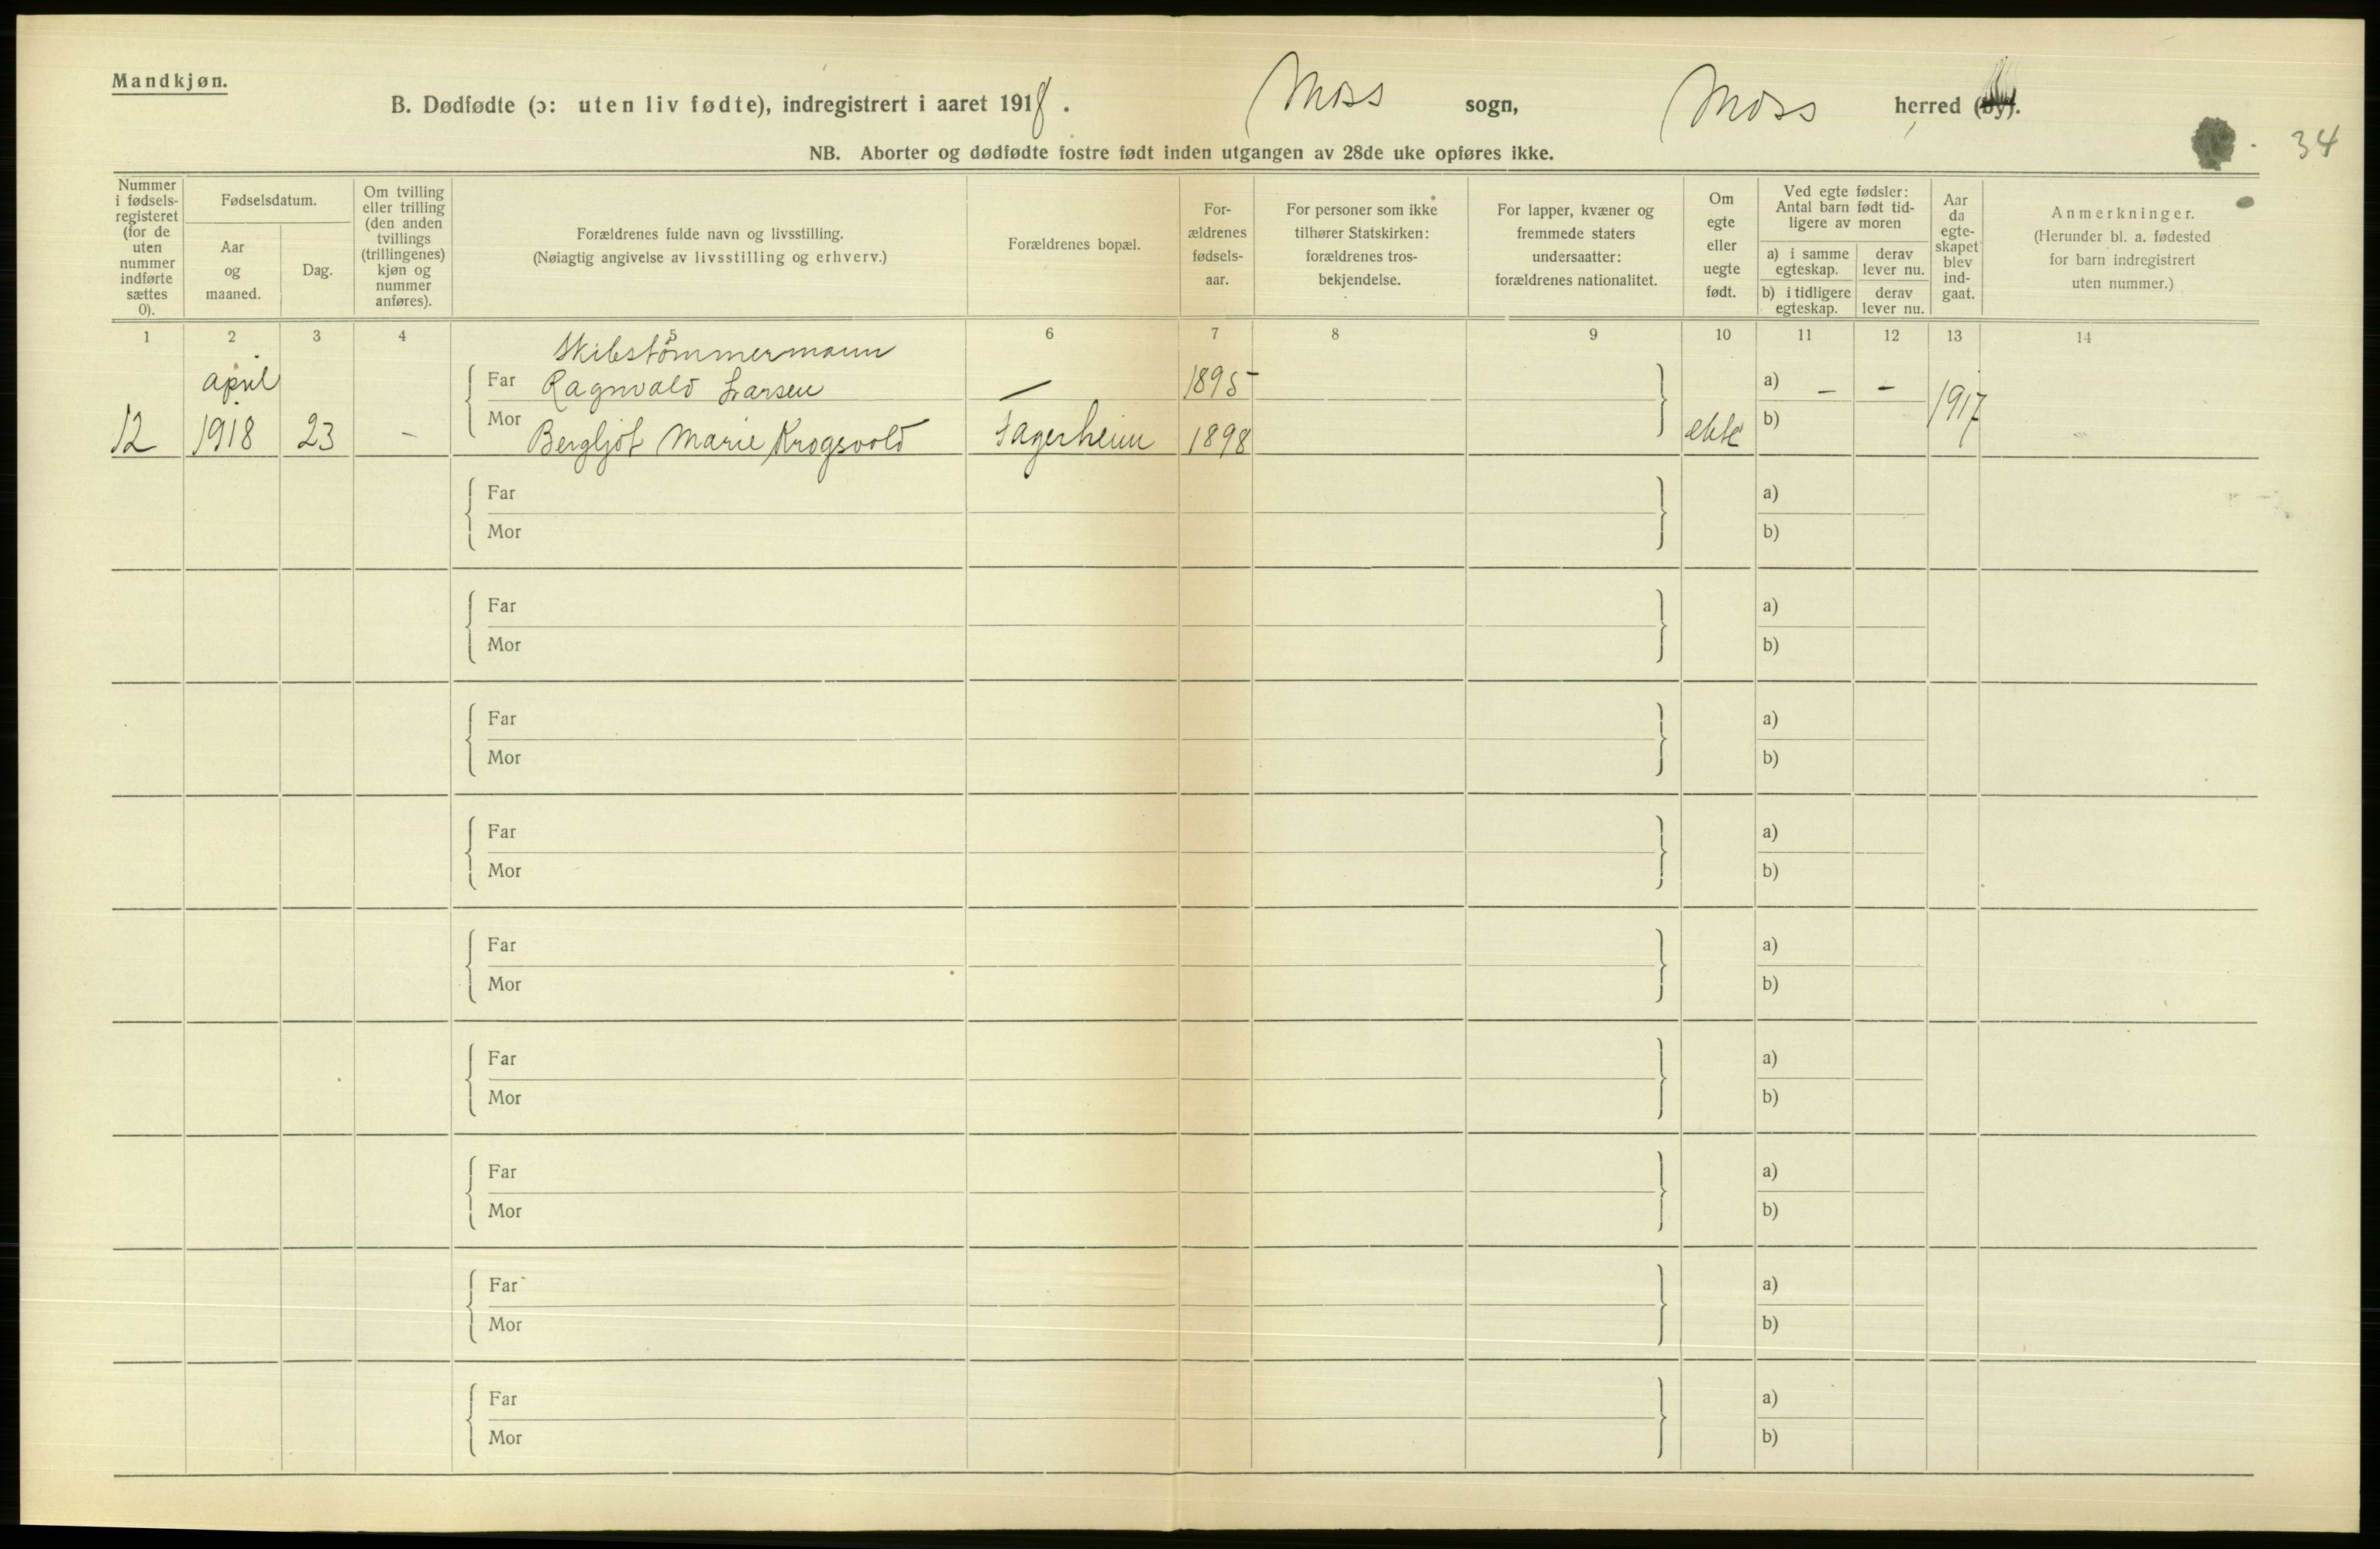 Mandkjøn.
B. Dødfødte (ɔ: uten liv fødte), indregistrert i aaret 1918. Moss sogn, Moss herred (by).
34
NB. Aborter og dødfødte fostre født inden utgangen av 28de uke opføres ikke.
Nummer i fødsels-registeret (for de uten nummer indførte sættes 0).
Fødselsdatum.
Aar og maaned.
Dag.
Om tvilling eller trilling (den anden tvillings (trillingenes) kjøn og nummer anføres).
Forældrenes fulde navn og livsstilling.
(Nøiagtig angivelse av livsstilling og erhverv.)
Forældrenes bopæl.
For-ældrenes fødsels-aar.
For personer som ikke tilhører Statskirken: forældrenes tros-bekjendelse.
For lapper, kvæner og fremmede staters undersaatter: forældrenes nationalitet.
Om egte eller uegte født.
Ved egte fødsler: Antal barn født tid-ligere av moren
a) i samme egteskap.
derav lever nu.
b) i tidligere egteskap.
derav lever nu.
Aar da egte-skapet blev ind-gaat.
Anmerkninger.
(Herunder bl. a. fødested for barn indregistrert uten nummer.)
1 2 3 4 5 6 7 8 9 10 11 12 13 14
Skibstømmermann
april Far Ragnvald Larsen — 1895 a) – – 1917
12 1918 23 – Mor Bergljot Marie Krogsvold Fagerheim 1898 ekte b)
Far a)
Mor b)
Far a)
Mor b)
Far a)
Mor b)
Far a)
Mor b)
Far a)
Mor b)
Far a)
Mor b)
Far a)
Mor b)
Far a)
Mor b)
Far a)
Mor b)